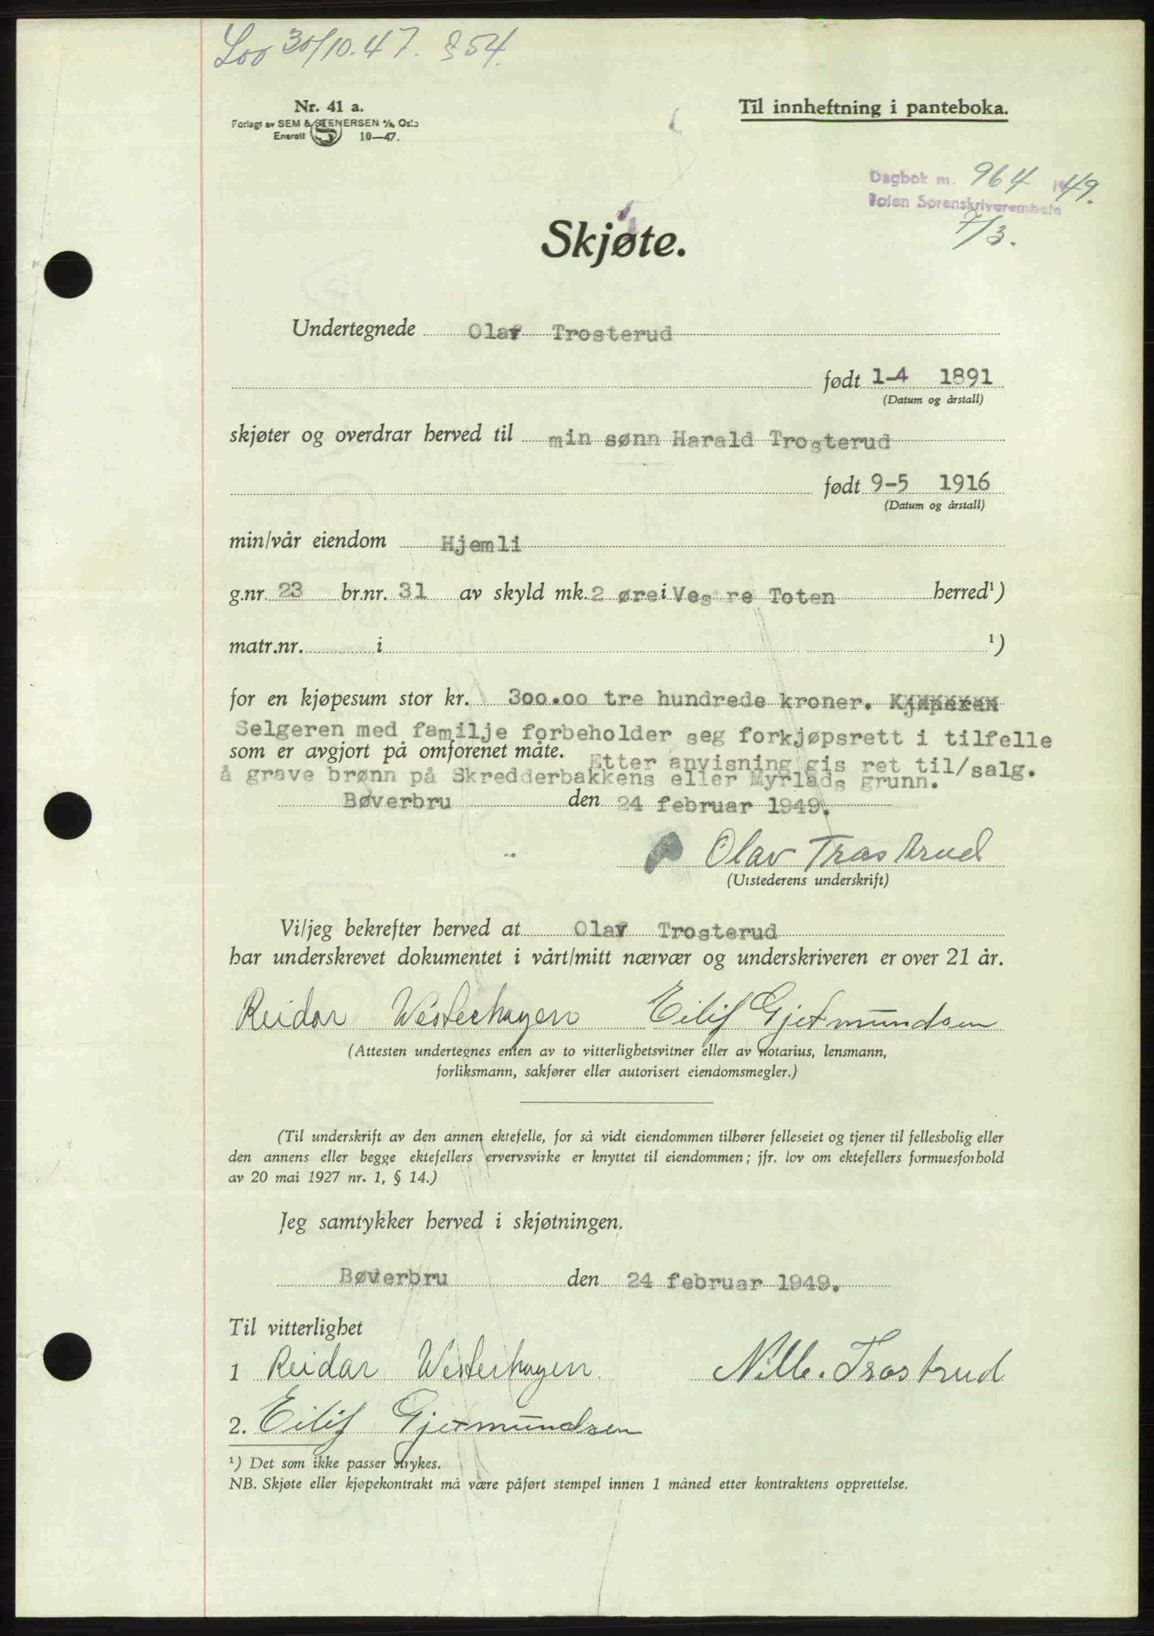 Lov 30/10.47. § 54.
Nr. 41 a.
Forlagt av SEM & STENERSEN A/S, Oslo
Enerett 10—47.
Til innheftning i panteboka.
Dagbok nr. 964 1949.
Toten Sorenskriverembete
7/3.
Skjøte.
Undertegnede Olav Trosterud
født 1-4 1891
(Datum og årstall)
skjøter og overdrar herved til min sønn Harald Trosterud
født 9-5 1916
(Datum og årstall)
min/vår eiendom Hjemli
g.nr. 23 br.nr. 31 av skyld mk. 2 øre i Vestre Toten herred¹)
matr.nr. i ¹)
for en kjøpesum stor kr. 300.00 tre hundrede kroner. Kjøperen
Selgeren med familje forbeholder seg forkjøpsrett i tilfelle
som er avgjort på omforenet måte. Etter anvisning gis ret til/salg.
å grave brønn på Skredderbakkens eller Myrlads grunn.
Bøverbru den 24 februar 1949.
Olav Trostrud
(Utstederens underskrift)
Vi/jeg bekrefter herved at Olav Trosterud
har underskrevet dokumentet i vårt/mitt nærvær og underskriveren er over 21 år.
Reidar Westerhagen Eilif Gjetmundsen
(Attesten undertegnes enten av to vitterlighetsvitner eller av notarius, lensmann,
forliksmann, sakfører eller autorisert eiendomsmegler.)
(Til underskrift av den annen ektefelle, for så vidt eiendommen tilhører felleseiet og tjener til fellesbolig eller
den annens eller begge ektefellers ervervsvirke er knyttet til eiendommen; jfr. lov om ektefellers formuesforhold
av 20 mai 1927 nr. 1, § 14.)
Jeg samtykker herved i skjøtningen.
Bøverbru den 24 februar 1949.
Til vitterlighet
1 Reidar Westerhagen. Nille. Trostrud
2. Eilif Gjetmundsen
¹) Det som ikke passer strykes.
NB. Skjøte eller kjøpekontrakt må være påført stempel innen 1 måned etter kontraktens opprettelse.